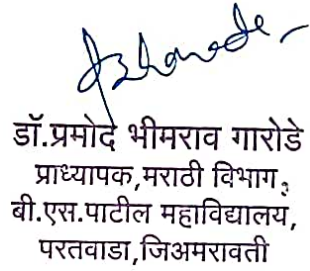 डॉ.प्रमोद भीमराव गारोडे
प्राध्यापक,मराठी विभाग,
बी.एस.पाटील महाविद्यालय,
परतवाडा,जिअमरावती